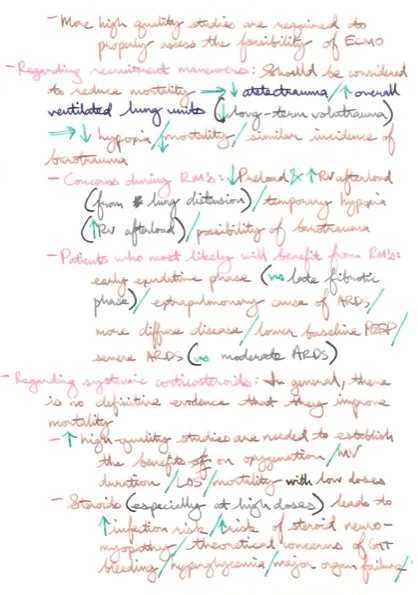 - More high quality studies are required to
properly assess the feasibility of ECMO
- Regarding recruitment maneuvers: Should be considered
to reduce mortality → ↓ atelectrauma/↑ overall
ventilated lung units (↓long-term volutrauma)
→ ↓ hypoxia/↓mortality/similar incidence of
barotrauma
- Concerns during RM's: ↓Preload & ↑RV afterload
(from lung distension)/temporary hypoxia
(↑RV afterload)/possibility of barotrauma
- Patients who most likely will benefit from RM's:
early exudative phase (vs late fibrotic
phase)/extrapulmonary cause of ARDS/
more diffuse disease/lower baseline PEEP/
severe ARDS (vs moderate ARDS)
- Regarding systemic corticosteroids: In general, there
is no definitive evidence that they improve
mortality
- ↑ high-quality studies are needed to establish
the benefits on oxygenation/MV
duration/LOS/mortality with low doses
- Steroids (especially at high doses) leads to
↑infection risk/↑risk of steroid neuro-
myopathy/theoretical concerns of GIT
bleeding/hyperglycemia/major organ failure/